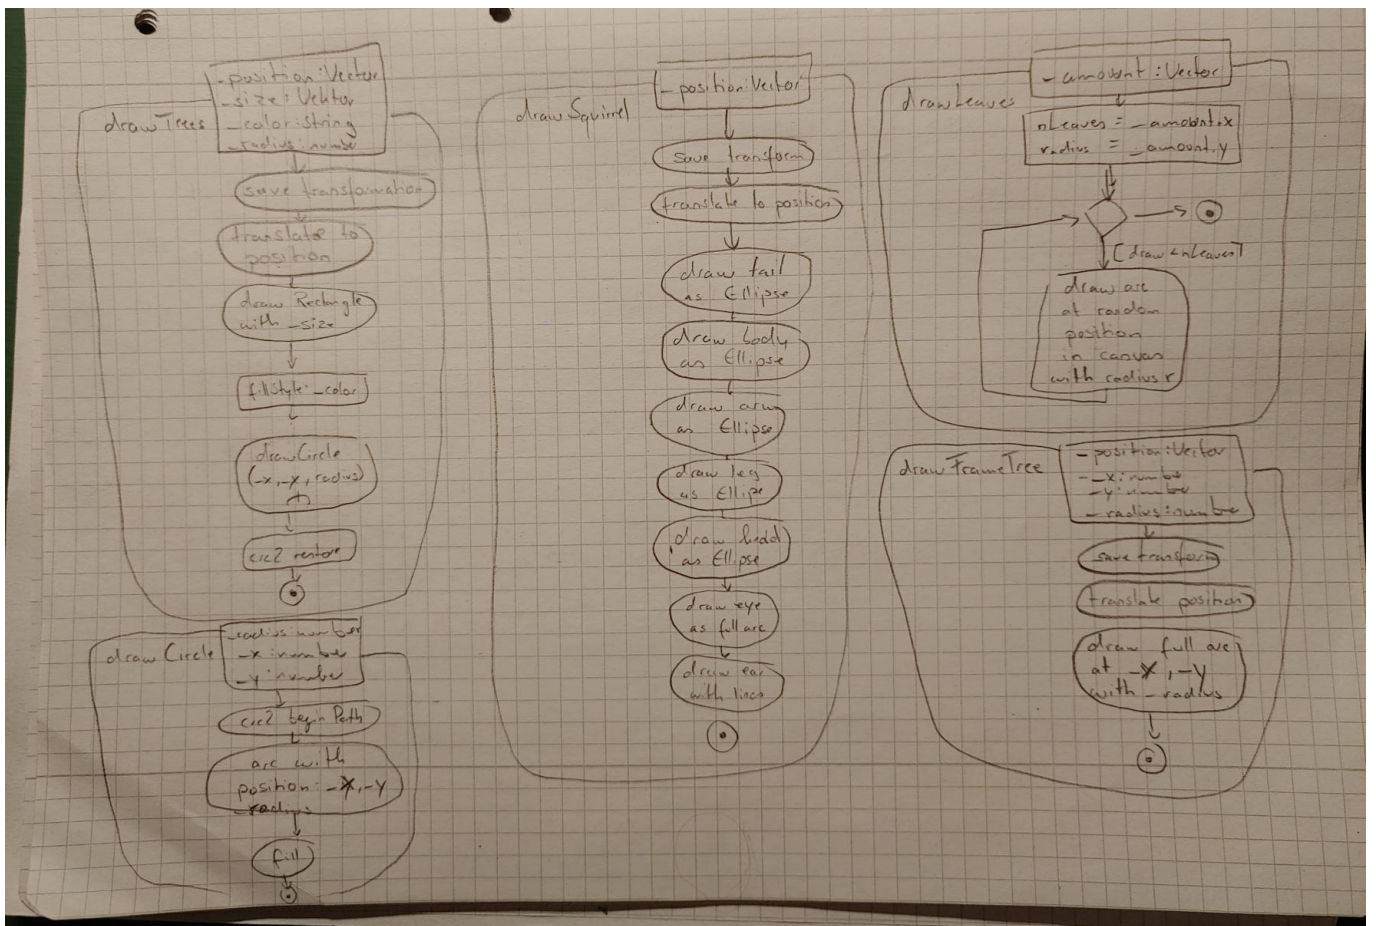 drawTrees
_position:Vector
_size:Vektor
_color:String
_radius:number
save transformation
translate to
position
draw Rectangle
with _size
fillStyle:_color
drawCircle
(_x,_y,radius)
crc2 restore
drawCircle
_radius:number
_x:number
_y:number
crc2 begin Path
arc with
position:_x,_y
_radius
fill
drawSquirrel
_position:Vector
save transform
translate to position
draw tail
as Ellipse
draw body
as Ellipse
draw arm
as Ellipse
draw leg
as Ellipe
draw head
as Ellipse
draw eye
as full arc
draw ear
with lines
drawLeaves
_amount:Vector
nLeaves = _amount.x
radius = _amount.y
[draw<nLeaves]
draw arc
at random
position
in canvas
with radius r
drawFrameTree
_position:Vector
_x:number
_y:number
_radius:number
save transform
translate position
draw full arc
at _x,_y
with _radius